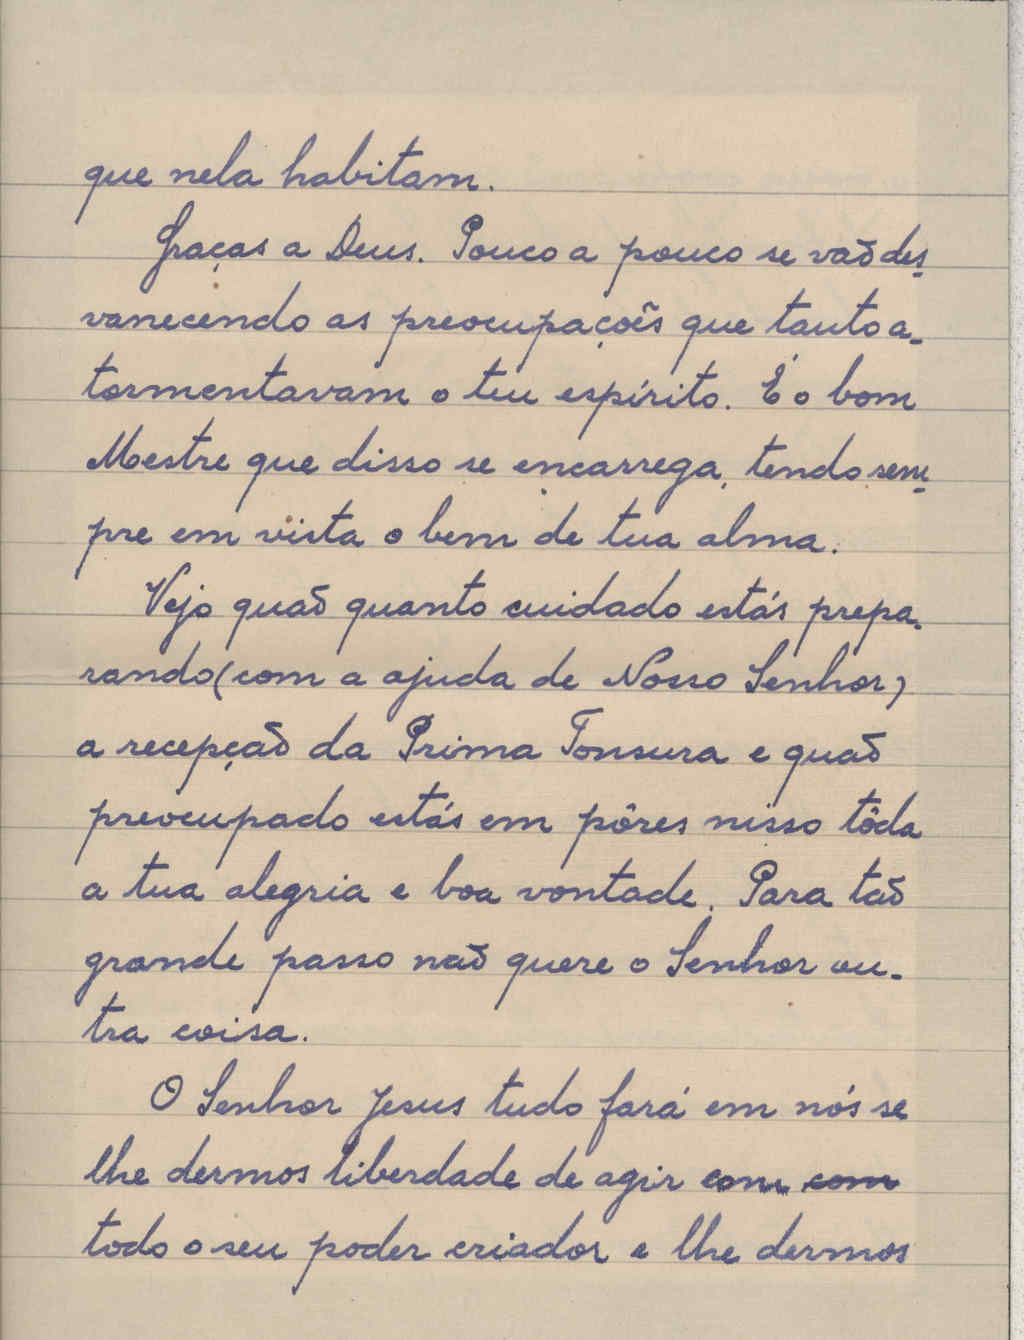 que nela habitam.
Graças a Deus. Pouco a pouco se vaõ des-
vanecendo as preocupaçoẽs que tanto a-
tormentavam o teu espírito. É o bom
Mestre que disso se encarrega, tendo sem-
pre em vista o bem de tua alma.
Vejo quaõ quanto cuidado estás prepa-
rando (com a ajuda de Nosso Senhor)
a recepçaõ da Prima Tonsura e quaõ
preocupado estás em pôres nisso tôda
a tua alegria e boa vontade. Para taõ
grande passo naõ quere o Senhor ou-
tra coisa.
O Senhor Jesus tudo fará em nós se
lhe dermos liberdade de agir com com
todo o seu poder criador e lhe dermos